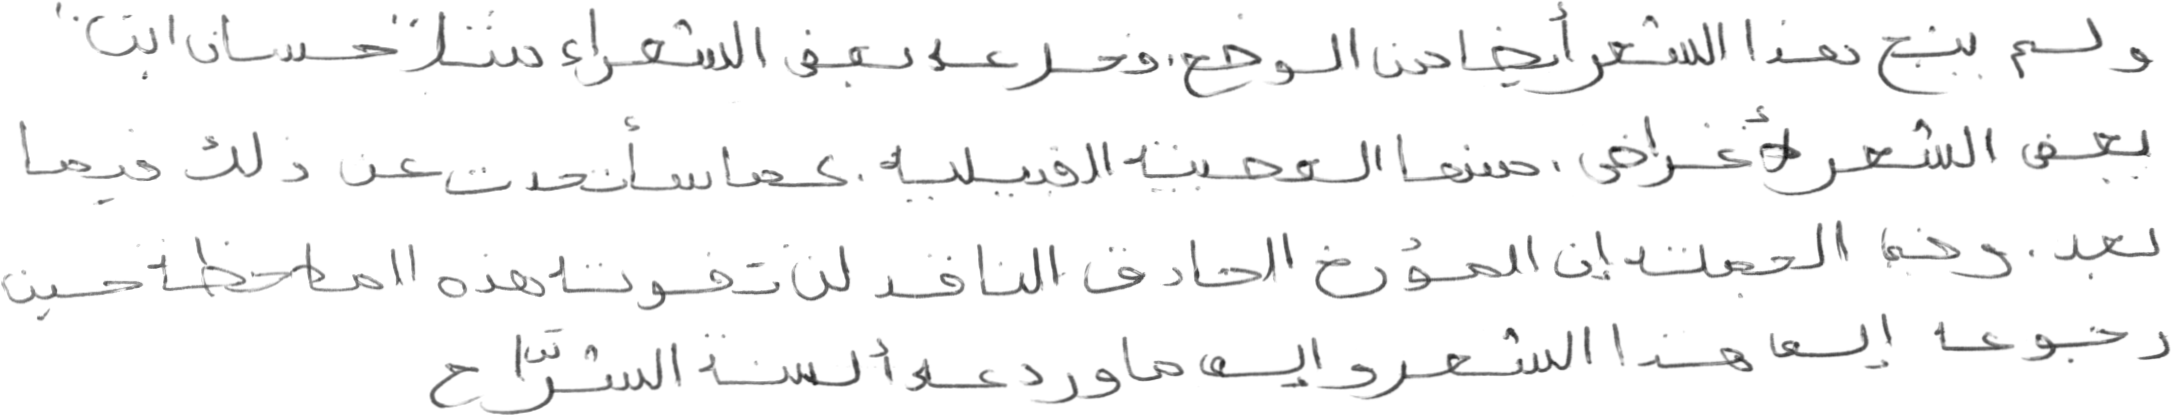 ولم ينج هذا الشعر أيضا من الوضع، فحمل على بعض الشعراء مثل "حسان ابن"
بعض الشعر لأغراض، منها العصبية القبيلية. كما سأتحدث عن ذلك فيما
بعد. وفي الجملة إن المؤرخ الحاذق الناقد لن تفوته هذه الملاحظة حين
رجوعه إلى هذا الشعر وإلى ما ورد على ألسنة الشرّاح